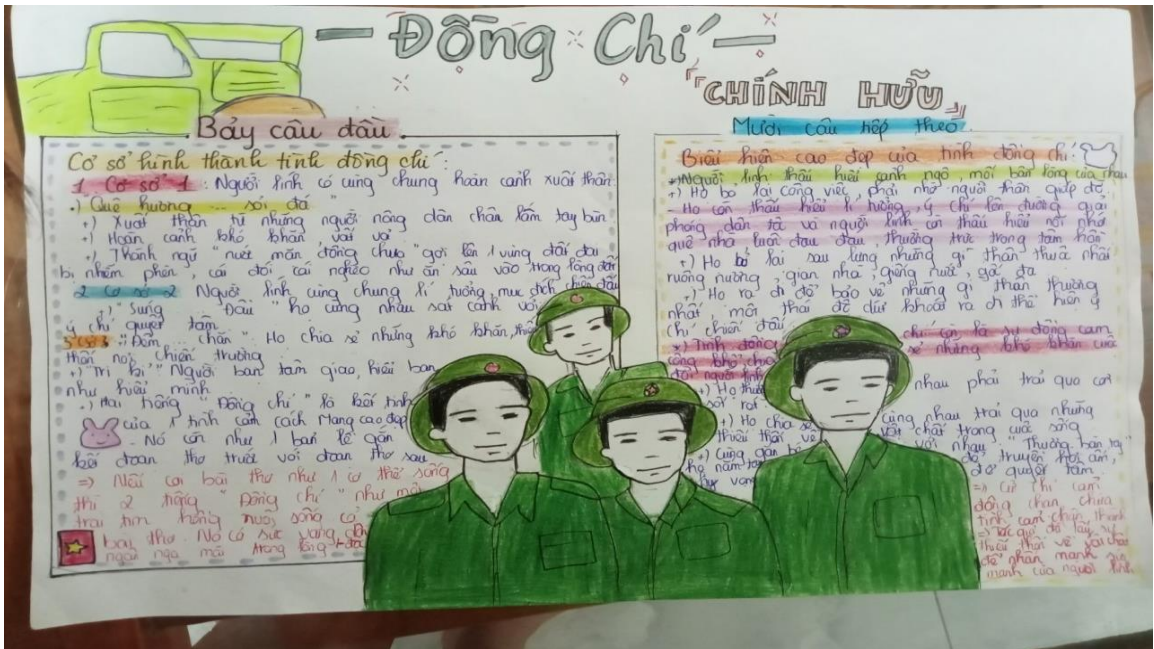 Đồng Chí
CHÍNH HỮU
Bảy câu đầu
Cơ sở hình thành tình đồng chí:
1 Cơ sở 1: Người lính có cùng chung hoàn cảnh xuất thân
+) "Quê hương ... sỏi đá"
+) Xuất thân từ những người nông dân chân lấm tay bùn
+) Hoàn cảnh khó khăn, vất vả
+) Thành ngữ "nước mặn đồng chua" gợi lên 1 vùng đất đai
bị nhiễm phèn, cái đói cái nghèo như ăn sâu vào trong lòng đất
2 Cơ sở 2 Người lính cùng chung lí tưởng, mục đích chiến đấu
"Súng ... Đầu" họ cùng nhau sát cánh với
ý chí quyết tâm
3 Cơ sở 3 "Đêm ... chăn" Họ chia sẻ những khó khăn, thiếu
thốn nơi chiến trường
+) "Tri kỉ" Người bạn tâm giao, hiểu bạn
như hiểu mình
+) Hai tiếng "Đồng chí" là kết tinh
của 1 tình cảm cách mạng cao đẹp
- Nó còn như 1 bản lề gắn
kết đoạn thơ trước với đoạn thơ sau
=> Nếu coi bài thơ như 1 cơ thể sống
thì 2 tiếng "Đồng chí" như một
trái tim hồng nuôi sống cả
bài thơ. Nó có sức vang
ngân nga mãi trong lòng
Mười câu tiếp theo
Biểu hiện cao đẹp của tình đồng chí:
*) Người lính thấu hiểu cảnh ngộ, mối bận lòng của nhau
+) Họ bỏ lại công việc phải nhờ người thân giúp đỡ
- Họ còn thấu hiểu lí tưởng, ý chí lên đường giải
phóng dân tộc và người lính còn thấu hiểu nỗi nhớ
quê nhà luôn đau đáu, thường trực trong tâm hồn
+) Họ bỏ lại sau lưng những gì thân thuộc nhất
ruộng nương, gian nhà, giếng nước, gốc đa
+) Họ ra đi để bảo vệ những gì thân thương
nhất, một thái độ dứt khoát ra đi thể hiện ý
chí chiến đấu
*) Tình đồng chí còn là sự đồng cam
cộng khổ, chia sẻ những khó khăn cuộc
đời người lính
+) Họ nhau phải trải qua cơn
sốt rét
+) Họ chia sẻ cùng nhau trải qua những
thiếu thốn về vật chất trong cuộc sống
+) Cùng gắn bó với nhau "Thương nhau tay
họ nắm tay để truyền hơi ấm,
hy vọng để quyết tâm
=> Cử chỉ cảm
động chan chứa
tình cảm chân thành
=> Tác giả đã lấy
thiếu thốn về vật chất
để nhấn mạnh
mạnh của người lính